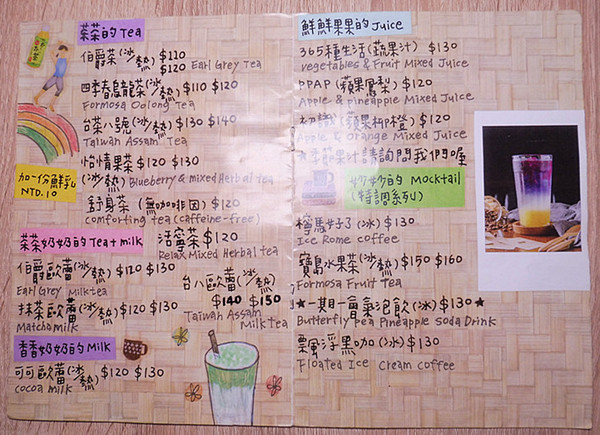 茶茶的 Tea
伯爵茶(冰/熱) $110
$120 Earl Grey Tea
四季春烏龍茶(冰/熱) $110 $120
Formosa Oolong Tea
台茶八號(冰/熱) $130 $140
Taiwan Assam Tea
怡情果茶 $120 $130
(冰/熱) Blueberry & mixed Herbal tea
加一份鮮乳
NTD.10
舒身茶 (無咖啡因) $120
comforting tea (caffeine-free)
活靈茶 $120
Relax Mixed Herbal tea
茶茶奶奶的 Tea + milk
伯爵歐蕾(冰/熱) $120 $130
Earl Grey Milktea
抹茶歐蕾(冰/熱) $120 $130
Matcha milk
台八歐蕾(冰/熱)
$140 $150
Taiwan Assam
Milk tea
香香奶奶的 Milk
可可歐蕾(冰/熱) $120 $130
cocoa milk
鮮鮮果果的 Juice
365種生活(蔬果汁) $130
vegetables & Fruit Mixed Juice
PPAP (蘋果鳳梨) $120
Apple & pineapple Mixed Juice
初識(蘋果柳橙) $120
Apple & Orange Mixed Juice
★季節果汁請詢問我們喔
妙妙的 Mocktail
(特調系列)
檸馬好了(冰) $130
Ice Rome coffee
寶島水果茶(冰/熱) $150 $160
Formosa Fruit Tea
★一期一會氣泡飲(冰) $130★
Butterfly pea Pineapple Soda Drink
飄浮黑咖(冰) $130
Floated Ice Cream Coffee